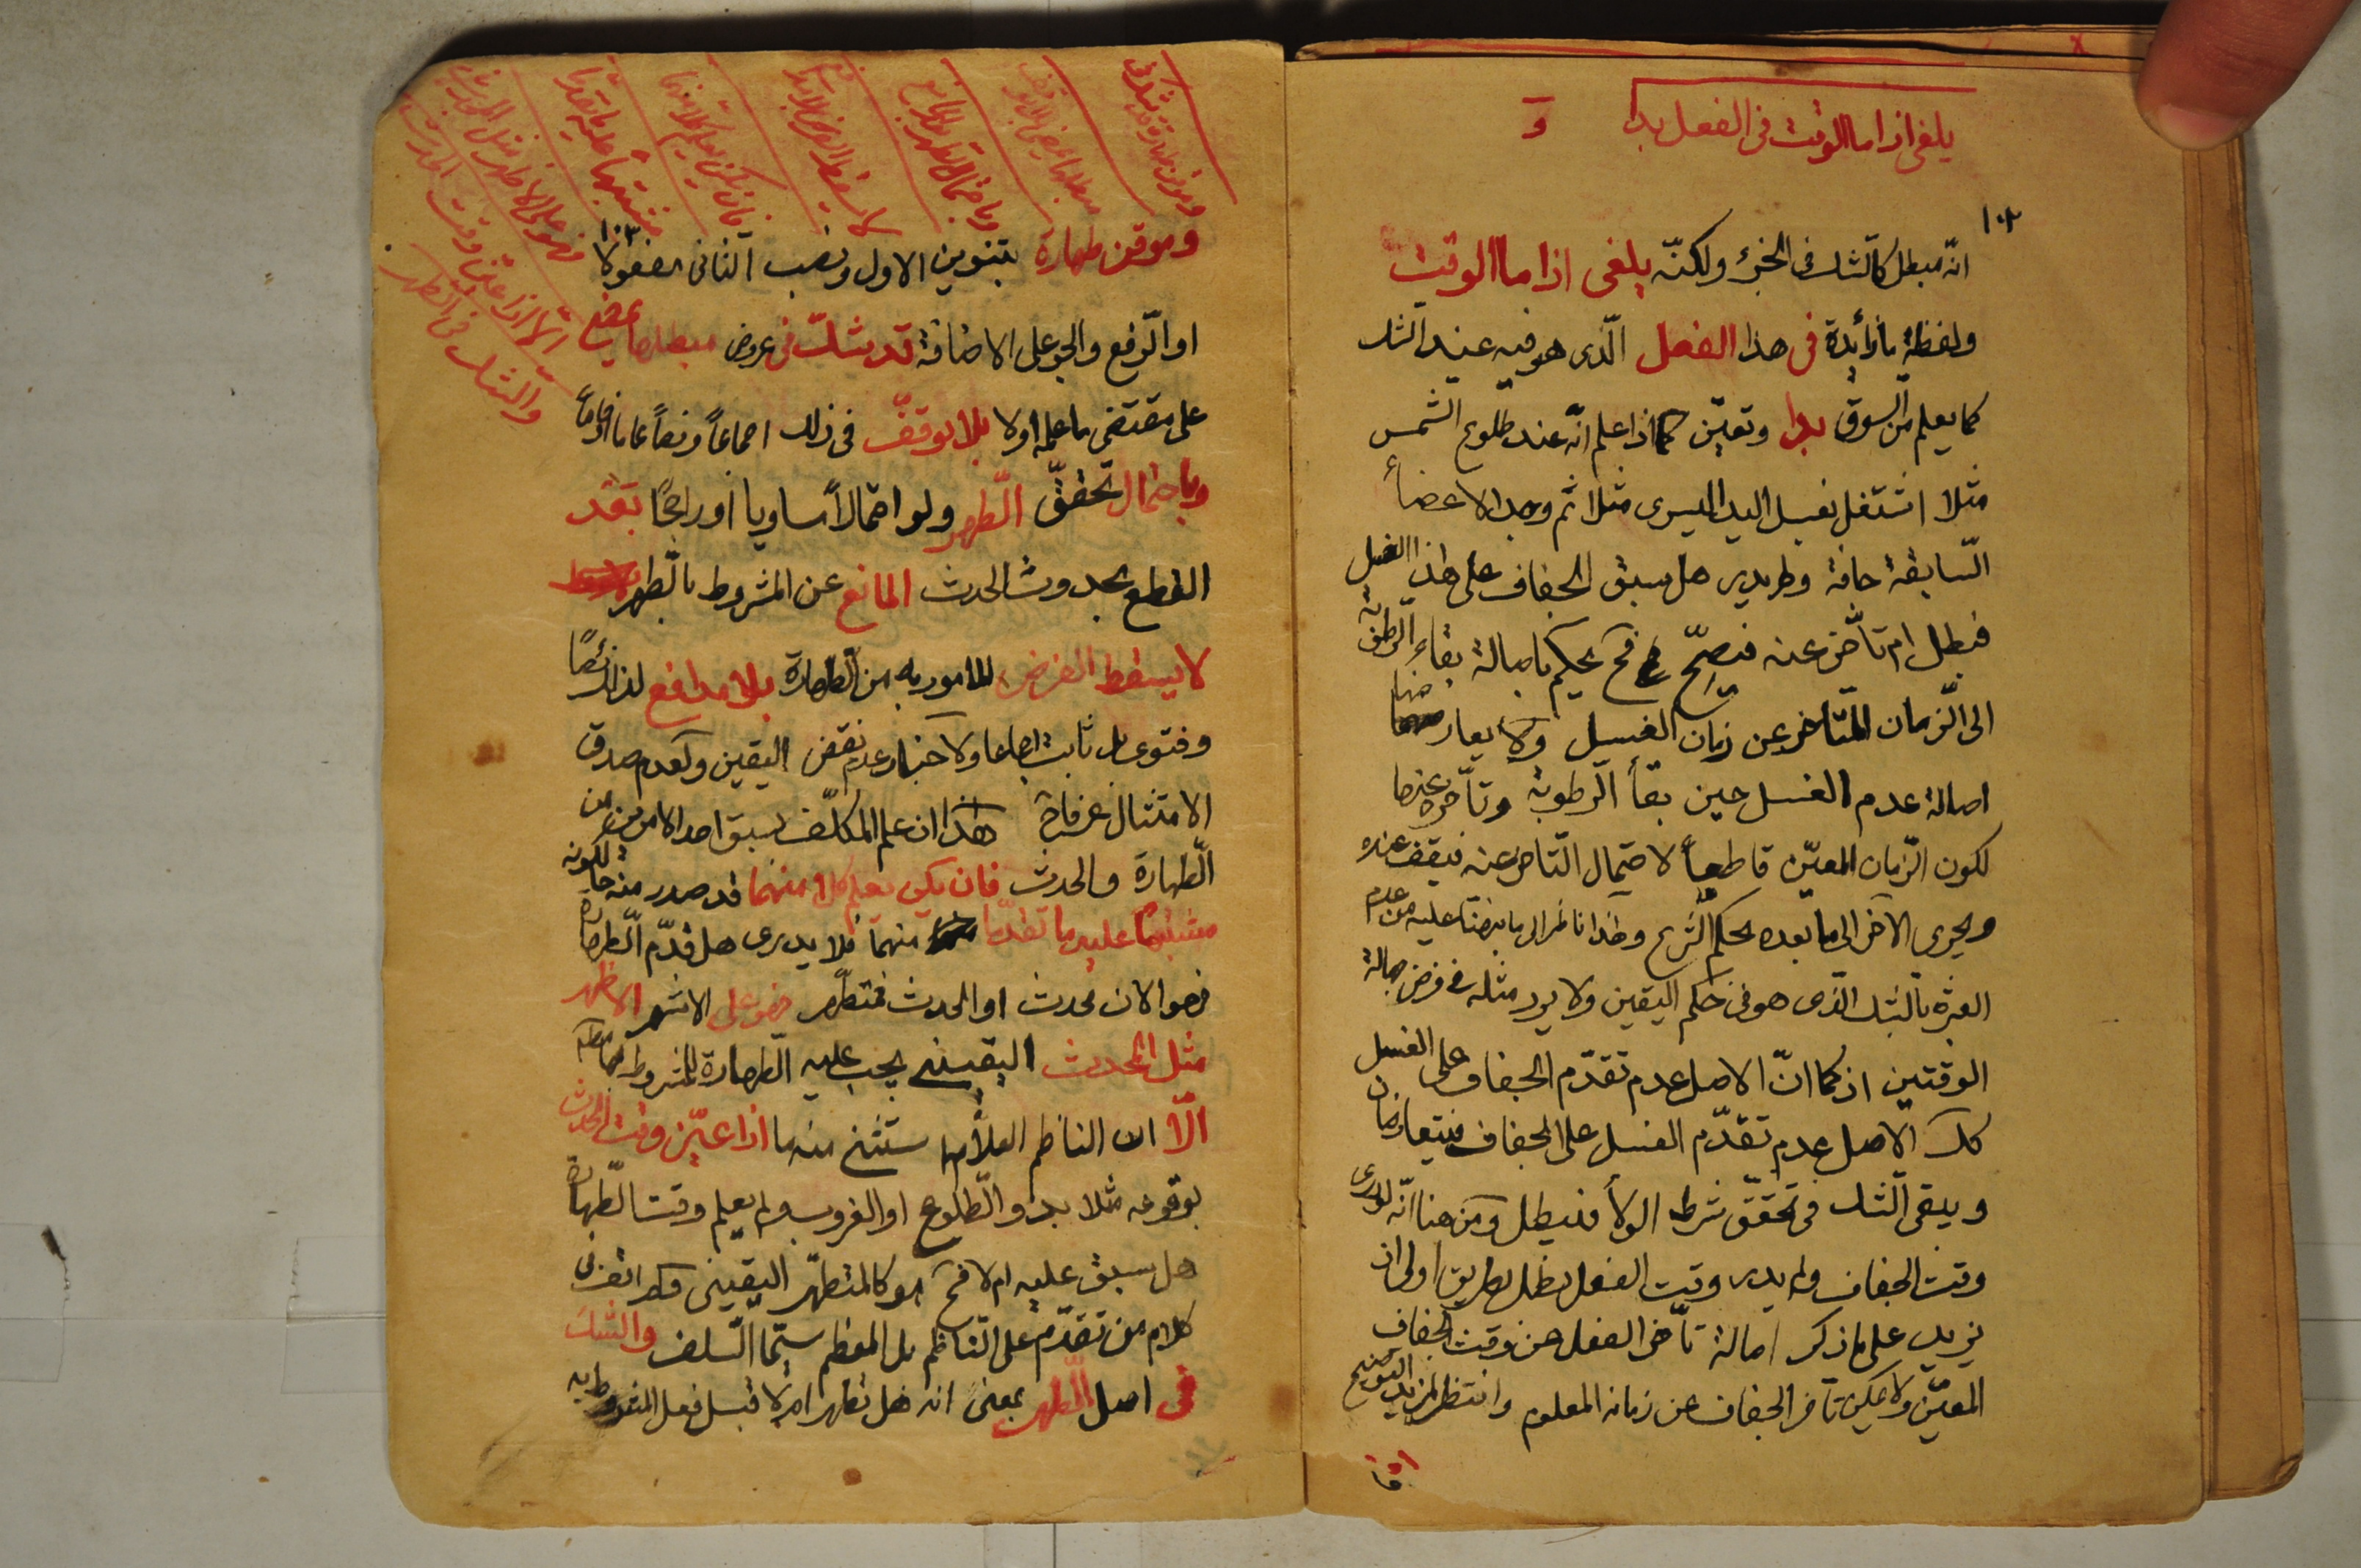 يلغى اذا ما الوقت فى الفعل بدا
و
١٠٢
انّه مبطل كالشك فى الجزء ولكنّه يلغى اذا ما الوقت
ولفظة ما زائدة فى هذا الفعل الّذى هو فيه عند الشك
كما يعلم من السوق بدا وتعيّن كما اذا علم انّه عند طلوع الشمس
مثلا اشتغل بغسل اليد اليسرى مثلا ثم وجد الاعضأ
السّابقة جافة ولم يدر هل سبق الجفاف على هذا الغسل
فبطل ام تأخّر عنه فيصحّ فح يحكم باصالة بقاء الرطوبة
الى الزّمان المتاخر عن زمان الغسل ولا يعارضها
اصالة عدم الغسل حين بقأ الرّطوبة وتأخره عنها
لكون الزّمان المعيّن قاطعاً لاحتمال التّاخر عنه فيقف عنده
ويجرى الآخر الى ما بعده بحكم الشرع وهذا ناظر الى ما عليه من عدم
العبرة بالشك الّذى هو فى حكم اليقين ولا يرد مثله فى فرض جهالة
الوقتين اذ كما انّ الاصل عدم تقدّم الجفاف على الغسل
كك الاصل عدم تقدّم الغسل على الجفاف فيتعارضان
ويبقى الشك فى تحقق شرط الولأ فيبطل ومن هنا انّه لو درى
وقت الجفاف ولم يدر وقت الفعل بطل بطريق اولى اذ
يزيد على ما ذكر اصالة تأخر الفعل عن وقت الجفاف
المعيّن ولا يمكن تأخر الجفاف عن زمانه المعلوم وانتظر لمزيد التوضيح
وموقن طهارة قد شك فى
وباحتمال الطهر المانع
لا يسقط الفرض بلا
فان يكن يعلم كلا منهما
مشتبها عليه ما تقدّما
فهو على الاظهر مثل المحدث
الّا اذا عيّن وقت الحدث
والشك فى الطهر
١٠٣
وموقن طهارة بتنوين الاول ونصب الثانى مفعولا
او الرّفع والجر على الاضافة قد شكّ فى عروض مبطلها يمضى
على مقتضى ما علمه اولا بلا توقفّ فى ذلك اجماعاً ونصاً
وباحتمال تحقّق الطّهر ولو احتمالاً مساويا او راجحًا بعد
القطع بحدوث الحدث المانع عن المشروط بالطهر
لا يسقط الفرض المامور به من الطّهارة بلا مدافع لذا نصًا
وفتوى بل ثابت اجماعا ولاخبار عدم نقض اليقين ولعدم صدق
الامتثال عرفا هذا ان علم المكلّف بسبق احد الامرين من
الطّهارة والحدث فان يكن يعلم كلا منهما قد صدر منه حالكونه
مشتبهًا عليه ما تقدّما منهما فلا يدرى هل قدّم الطّهارة
فهو الان محدث او الحدث فمتطهّر فهو على الاشهر الاظهر
مثل المحدث اليقينى يجب عليه الطّهارة للمشروط بها
الّا ان الناظم العلّامة استثنى منها اذا عيّن وقت الحدث
بوقوعه مثلا بدو الطّلوع او الغروب ولم يعلم وقت الطّهارة
هل سبق عليه ام لا فح هو كالمتطهّر اليقينى
كلام من تقدّم على النّاظم بل المعظم سيّما السّلف والشك
فى اصل الطّهر بمعنى انه هل تطهر ام لا قبل فعل المشروط به